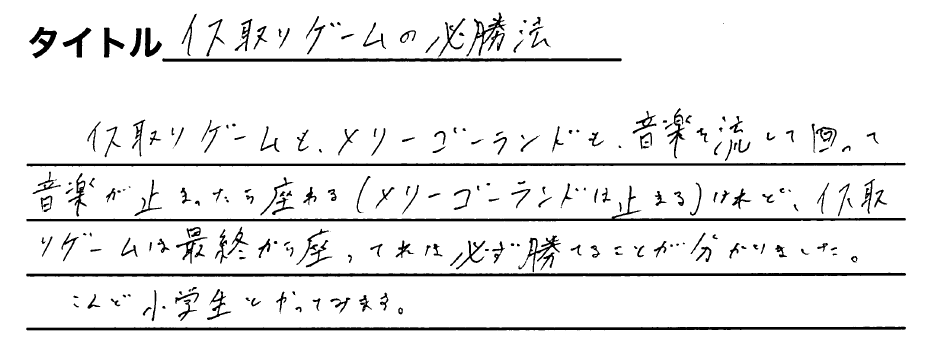 タイトル イス取りゲームの必勝法
イス取りゲームも、メリーゴーランドも、音楽を流して回って
音楽が止まったら座わる(メリーゴーランドは止まる)けれど、イス取
りゲームは最終から座ってれば必ず勝てることが分かりました。
こんど小学生とやってみます。